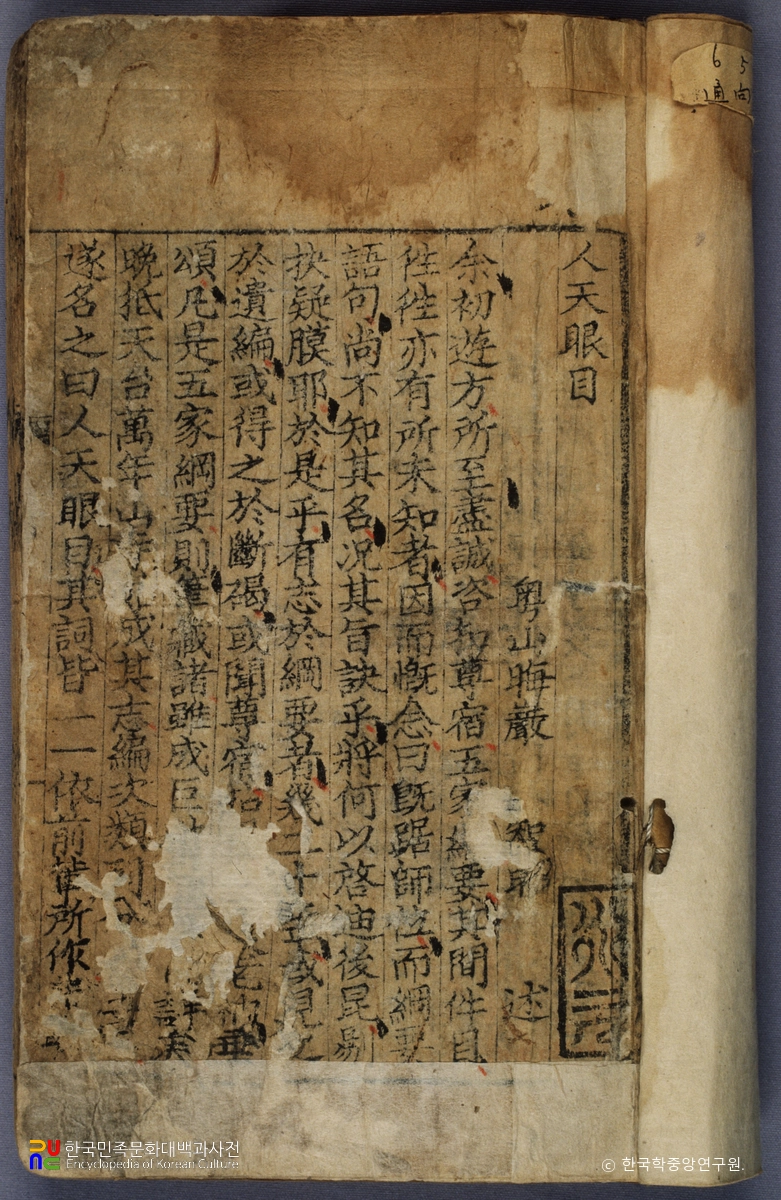 6 5
通 向
人天眼目
粤山晦巖 智昭 述
余初遊方所至盡誠咨扣尊宿五家綱要其間件目
徃徃亦有所未知者因而慨念曰旣踞師位而綱要
語句尚不知其名况其旨訣乎將何以啓迪後昆剔
抉疑膜耶於是乎有志於綱要者幾二十
於遺編或得之於斷碣或聞尊宿
頌凡是五家綱要則筆藏諸雖成巨
晩抵天台萬年山 成其志編次類
遂名之曰人天眼目其詞皆一一依前輩所作
한국민족문화대백과사전
Encyclopedia of Korean Culture
© 한국학중앙연구원.